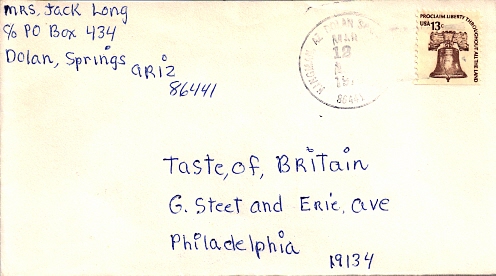 MRS. Jack Long
% PO Box 434
Dolan, Springs
ARIZ
86441
PROCLAIM LIBERTY THROUGHOUT ALL THE LAND
USA 13c
MAR
12
86441
Taste, of, BRitain
G. Steet and Erie, ave
Philadelphia
19134